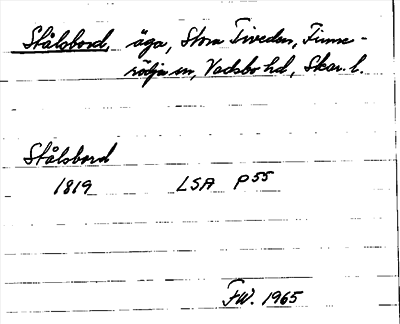 Stålsbord, äga, Stora Tiveden, Finne-
rödja sn, Vadsbo hd, Skar. l.
Stålsbord
1819 LSA P55
FW. 1965